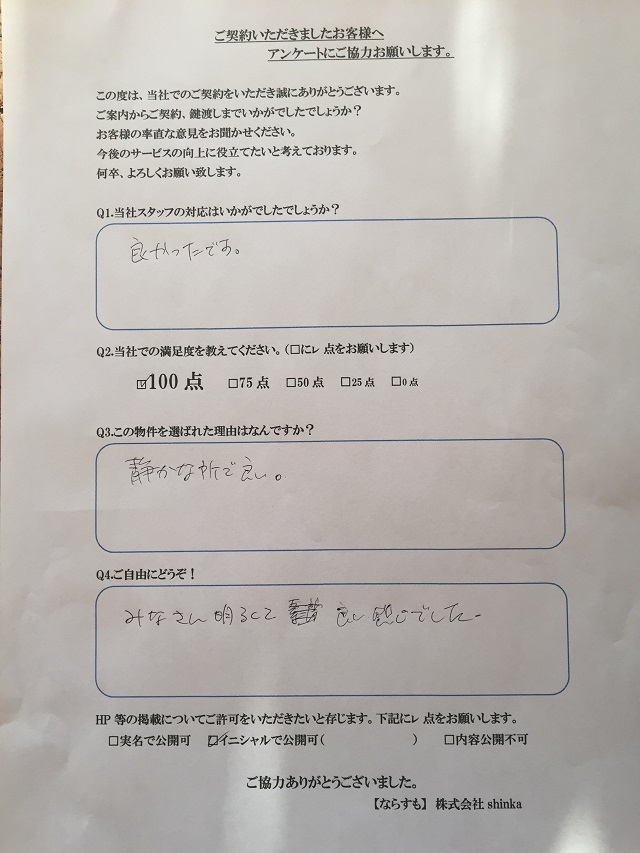 ご契約いただきましたお客様へ
アンケートにご協力お願いします。
この度は、当社でのご契約をいただき誠にありがとうございます。
ご案内からご契約、鍵渡しまでいかがでしたでしょうか？
お客様の率直な意見をお聞かせください。
今後のサービスの向上に役立てたいと考えております。
何卒、よろしくお願い致します。
Q1.当社スタッフの対応はいかがでしたでしょうか？
良かったです。
Q2.当社での満足度を教えてください。（□にレ点をお願いします）
☑100点 □75点 □50点 □25点 □0点
Q3.この物件を選ばれた理由はなんですか？
静かな所で良い。
Q4.ご自由にどうぞ！
みなさん明るくて 良い感じでした。
HP等の掲載についてご許可をいただきたいと存じます。下記にレ点をお願いします。
□実名で公開可 ☑イニシャルで公開可( ) □内容公開不可
ご協力ありがとうございました。
【ならすも】株式会社shinka